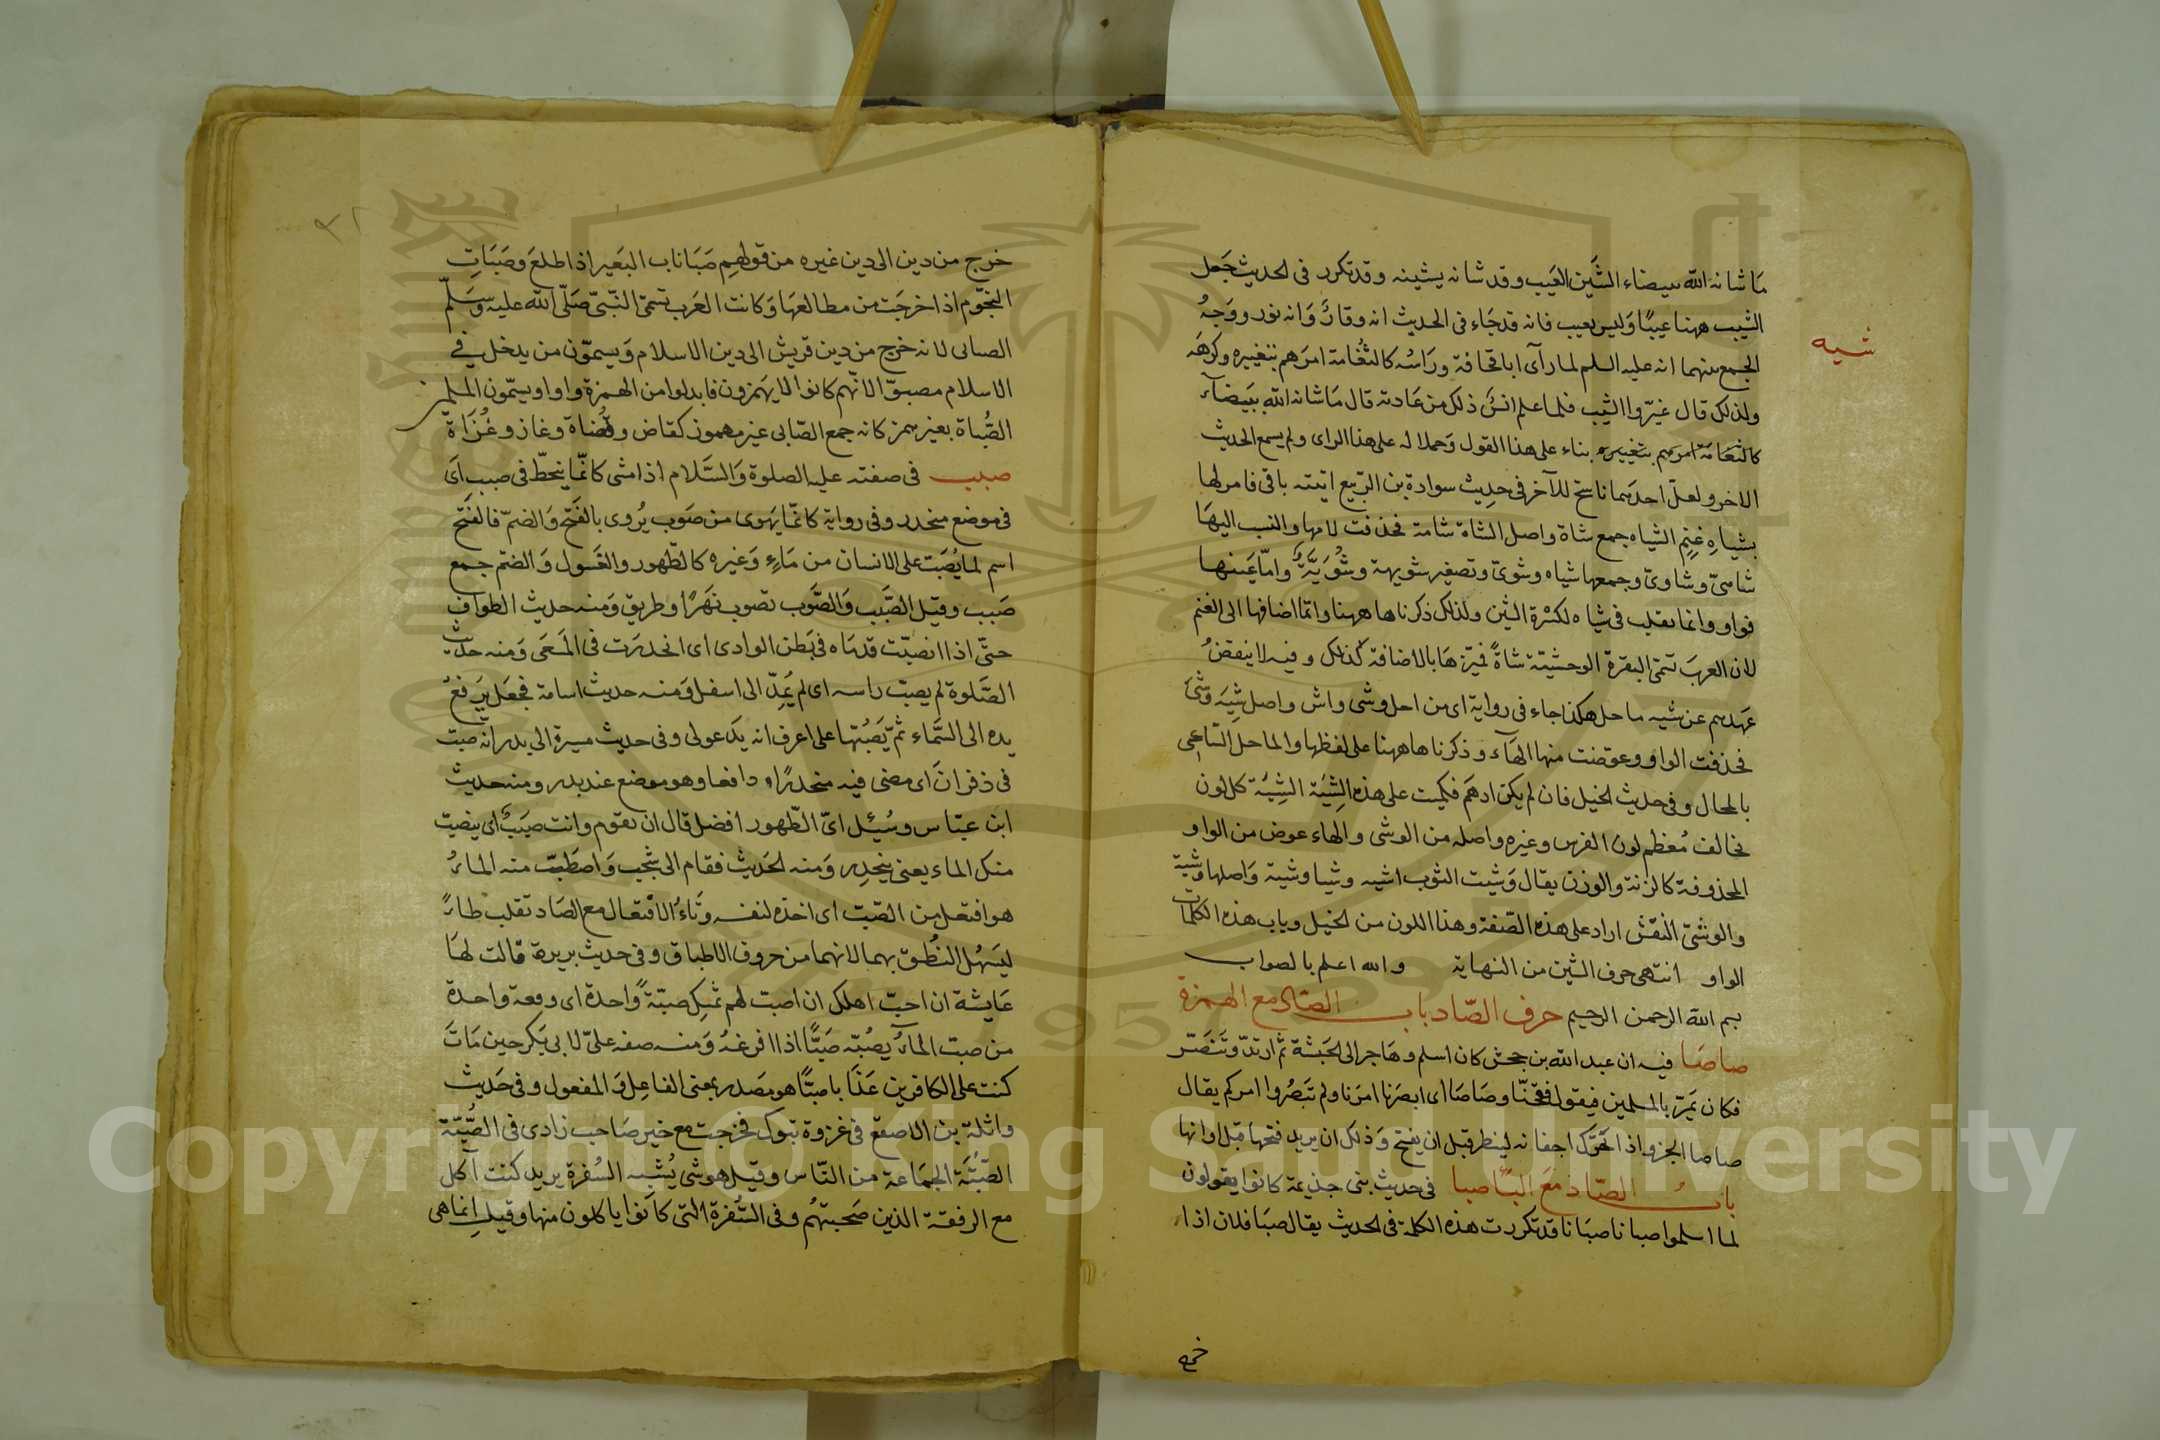 مَا شانه الله ببيضاء الشَين العَيب وقد شانه يشينه وقد تكرر فى الحديث جَعل
الشيب ههنا عيبًا وَليس بعيب فانه قد جَاء فى الحديث انه وقارٌ وَانه نور ووَجهُ
الجمع بينهما انه عليه السلم لما رآى ابا قحافة ورَاسُه كالثُغامة امرَهم بتغييره وكرهَه
ولذلك قال غيّروا الشيب فلما علم انسٌ ذلك من عَادته قال مَا شانه الله بَبيضآء
كالثغَامَة امرَهم بتغييره بناء على هذا القول وَحملا له على هذا الراى ولم يسمع الحديث
الاخر ولعلّ احدَهما ناسخ للآخر فى حديث سوادة بن الربيع اتيته باقى فامر لها
بشياهِ غنِم الشياه جمع شاة واصل الشاة شاهة فحذفت لامها والنسب اليهَا
شاهىّ وشاوىّ وجمعها شياه وشوىّ وتصغير شويهة وشُوَيَّةٌ وامّا عَينها
فواو وانما نقلب فى شياه لكسْرة الشين ولذلك ذكرناها ههنا وانمّا اضافها الى الغنم
لان العربَ تسمّى البقرة الوحشيّة شاةً فميّزهَا بالاضافة لذلك وفيه لا ينقضُ
عهدهم عن شيه ماحل هكذا جاء فى رواية اى من اجل وشى واش واصل شِيَه وَشىَ
فحذفت الواو وعوّضت منها الهَاء وذكرناها ههنا على لفظها والماحل السَاعى
بالمحال وفى حديث الخيل فان لم يكن ادهَم فكميت على هذه الشِيَة الشِيَة كل لون
يخالف مُعظم لون الفرس وغيره واصله من الوشى والهاء عوض من الواو
المحذوفة كالزنة والوزن يقال وَشيت الثوب اشيه وشيا وشية وَاصلها وشية
والوشىّ النقش اراد على هذه الصّفة وهذا اللون من الخيل وباب هذه الكلمات
الواو انتهى حرف الشين من النهاية والله اعلم بالصواب
شيه
بسم الله الرحمن الرحيم حرف الصّاد باب الصّاد مع الهمزة
صاصَا فيه ان عبد الله بن جحش كان اسلم وهَاجر الى الحَبشة ثم ارتدّ وتَنَصّر
فكان يَمرّ بالمسلمين فيقول فقّحنّا وصَاصَا اى ابصَرنا امرَنا ولم تَبصُروا امركم يقال
صاصا الجرو اذا حَرّك اجفانه لينظر قبل ان يفتّح وَذلك ان يريد فتحها قبل اوانها
باب الصّاد مَعَ البَاء صبا فى حديث بنى جذيمة كانوا يقولون
لما اسلموا صبانا صبَانا قد تكررت هذه الكلمة فى الحديث يقال صبَا فلان اذا
خرج
خرج من دين الى دين غيره من قولهم صَبَا ناب البَعير اذا طلعَ وصَبَاتِ
النجّوم اذا خرجَت من مطالعهَا وَكانت العَرب تسمّى النّبىّ صَلّى الله عليه وسَلّم
الصابى لانه خرج من دين قريش الى دين الاسلام وَيسموّن من يدخل فى
الاسلام مصبوّا لانّهم كانوا لا يهَمزون فابدلوا من الهمزة واوا ويسمّون المسلمين
الصُّباة بغير همز كانه جمع الصّابى غير مهموز كقاض وقُضاة وغاز وغُزَاة
صبب فى صفته عليه الصلوة وَالسَّلام اذا مشى كانّما ينحطّ فى صبب اَى
فى موضع منحدر وفى رواية كانمّا يهَوى من صَبوب يُروى بالفَتح وَالضمّ فالفَتح
اسم لما يُصَبّ على الانسان من مَاءٍ وَغيره كالطّهور والغَسول وَالضمّ جمع
صَبب وقيل الصَّبب وَالصَّبوب تصوب نَهَر او طريق وَمنه حديث الطواف
حتّى اذا انصبّت قدمَاه فى بَطن الوادى اى انحدرَت فى المَسعَى وَمنه حديث
الصَّلوة لم يصبّ راسه اى لم يَمِله الى اسفل وَمنه حديث اسامة فجَعل يَرفعُ
يده الى السَّماء ثمّ يَصَبُّها علىّ اعرف انه يدَعو لى وفى حديث مسيرة الى بدر انّه صبّ
فى ذفران اَى مضى فيه منحدرًا ودافعا وهو موضع عند بدر ومنه حديث
ابن عبّاس وسُئِل اىّ الطّهور افضل قال ان تقوم وانت صَبَبٌ اى ينصبّ
منك الماء يعنى يتحدِر وَمنه الحَديث فقام الى شَجب وَاصطَبّ منه الماءُ
هو افتعل من الصّب اى اخذه لنفسه وتَاءُ الافتعال مع الصَاد تقلب طاءً
ليَسَهُل النُطق بهما لانهما من حروف الاطباق وفى حديث بريرة قالت لهَا
عَايشة ان احبّ اهلك ان اصبّ لهم ثمنِك صبّةً واحدة اى دفعة واحدة
من صبّ الماءَ يُصُبّه صَبًّا اذا افرغهُ وَمنه صفه علىّ لابى بَكر حين مَاتَ
كنت على الكافرين عَذَابا صبًّا هو مصَدر بمعنى الفاعل وَ المفعول وفى حَديث
واثلة بن الاصقع فى غزوة تبوك فخرجت مع خير صَاحب زادى فى الصُّبّة
الصُّبَّة الجمَاعة من النّاس وقيل هو شى يُشبه السُفرة يريد كنت آكل
مع الرفقة الذين صَحبتهُم وفى السُّفرة التى كانوا ياكلون منها وقيل انما هى
Copyright © King Saud University
1957